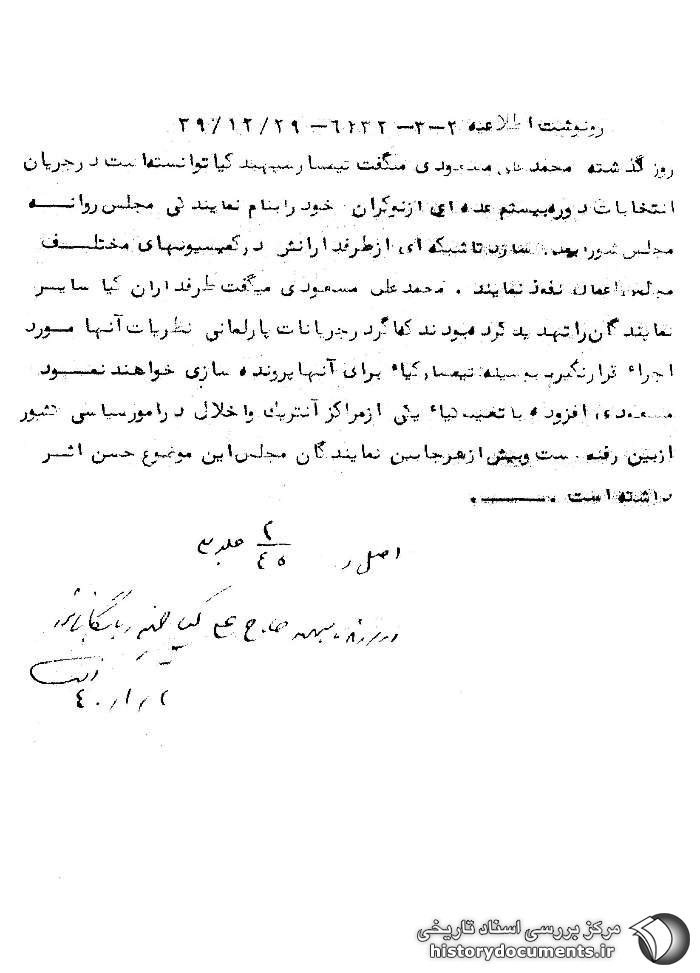 رونوشت اطلاعیه ۲-۳-۶۲۳۲-۳۹/۱۲/۲۹
روز گذشته محمدعلی مسعودی میگفت تیمسار سپهبد کیا توانسته است در جریان
انتخابات دوره بیستم عده ای از نوکران خود را بنام نمایندگی مجلس روانه
مجلس شورا سازد تا شبکه ای از طرفدارانش در کمیسیونهای مختلف
مجلس اعمال نفوذ نمایند . محمدعلی مسعودی میگفت طرفداران کیا سایر
نمایندگان را تهدید کرده بودند که اگر در جریانات پارلمانی نظریات آنها مورد
اجراء قرار نگیرد بوسیله تیمسار کیا برای آنها پرونده سازی خواهند نمود
مسعودی افزوده با تغییر کیا یکی از مراکز آنتریک و اخلال در امور سیاسی کشور
از بین رفته است و بیش از هر جا بین نمایندگان مجلس این موضوع حسن اثر
داشته است .
اصل در ۲/۴۵ جلد
در پرونده سپهبد حاج علی کیا
۴۰/۱/۲
مرکز بررسی اسناد تاریخی
historydocuments.ir